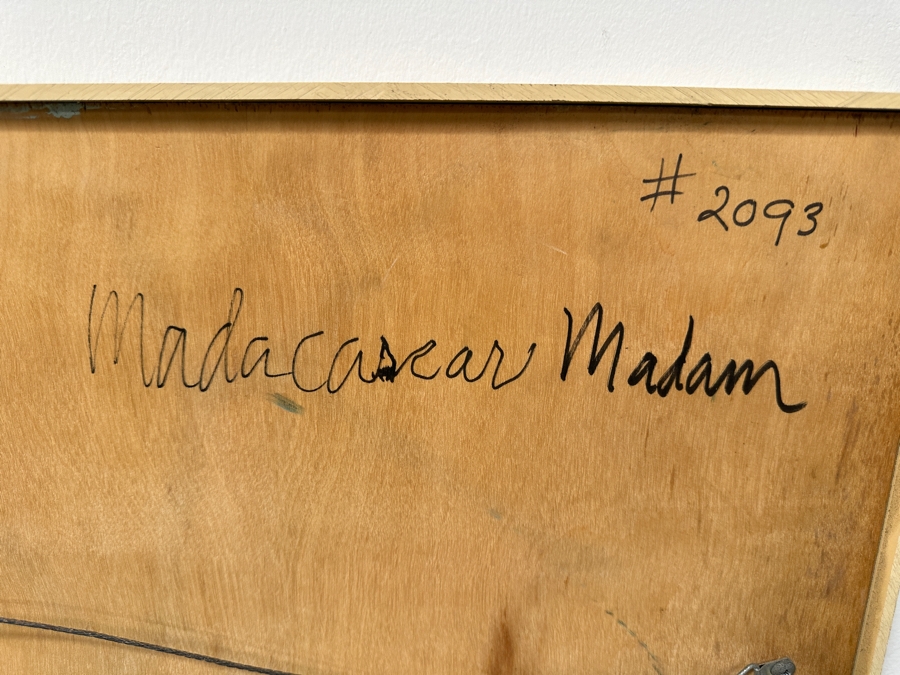 # 2093
Madacascar Madam